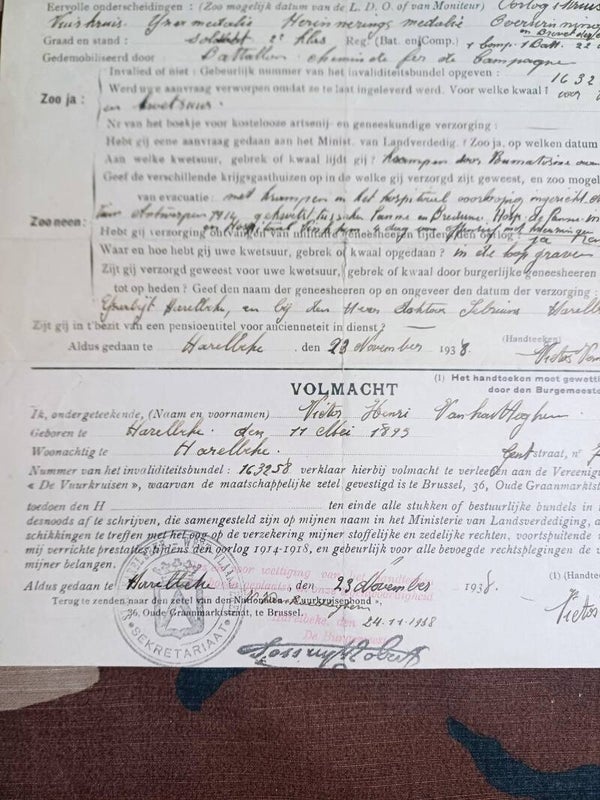 Eervolle onderscheidingen : (Zoo mogelijk datum van de L. D. O. of van Moniteur) Oorlogskruis
Vuurkruis Yzer medalie Herinnerings medalie Overwinnings
Graad en stand : soldaat 2e klas Reg. (Bat. en Comp.) 1 Comp. 1 Batt. 22
Gedemobiliseerd door Battallon chemin de fer de Campagne
Invalied of niet : Gebeurlijk nummer van het invaliditeitsbundel opgeven : 1632
Werd uwe aanvraag verworpen omdat ze te laat ingeleverd werd. Voor welke kwaal !
Zoo ja :
en kwetsuur.
Nr van het boekje voor kostelooze artsenij - en geneeskundige verzorging :
Hebt gij eene aanvraag gedaan aan het Minist. van Landverdedig. ? Zoo ja, op welken datum
Aan welke kwetsuur, gebrek of kwaal lijdt gij ? krampen door Rumatisme
Geef de verschillende krijgsgasthuizen op in de welke gij verzorgd zijt geweest, en zoo mogel
van evacuatie : met krampen in het hospitaal
Antwerpen 1914, gekwetst tusschen Panne en Bredune. Hosp. de Panne
Zoo neen :
Hebt gij verzorging ontvangen van militaire geneesheeren tijdens den oorlog : ja
Waar en hoe hebt gij uwe kwetsuur, gebrek of kwaal opgedaan ? in de loopgraven
Zijt gij verzorgd geweest voor uwe kwetsuur, gebrek of kwaal door burgerlijke geneesheeren
tot op heden ? Geef den naam der geneesheeren op en ongeveer den datum der verzorging :
Harelbeke, en bij den Heer Doktoor Harelb
Zijt gij in t'bezit van een pensioentitel voor ancienneteit in dienst ? —
(Handteeken)
Aldus gedaan te Harelbeke , den 23 November 1938. Victor Van
(1) Het handteeken moet gewetti
door den Burgemeeste
VOLMACHT
Ik, ondergeteekende, (Naam en voornamen) Victor Henri Vanhautteghem
Geboren te Harelbeke den 11 Mei 1893
Woonachtig te Harelbeke. Gentstraat, n° 7
Nummer van het invaliditeitsbundel : 163258 verklaar hierbij volmacht te verleenen aan de Vereenig
« De Vuurkruisen », waarvan de maatschappelijke zetel gevestigd is te Brussel, 36, Oude Graanmarktst
toedoen den H ten einde alle stukken of bestuurlijke bundels in t
desnoods af te schrijven, die samengesteld zijn op mijnen naam in het Ministerie van Landsverdediging, a
schikkingen te treffen met het oog op de verzekering mijner stoffelijke en zedelijke rechten, voortspuitende
mij verrichte prestaties tijdens den oorlog 1914-1918, en gebeurlijk voor alle bevoegde rechtsplegingen de v
mijner belangen.
(1) (Handte
Aldus gedaan te Harelbeke , den 23 November 1938. Victor
Terug te zenden naar den zetel van den Nationalen Vuurkruisenbond »,
36, Oude Graanmarktstraat, te Brussel.
Gezien voor wettiging van het handteeken
Harelbeke, den 24-11-1938
De Burgemeester
SEKRETARIAAT